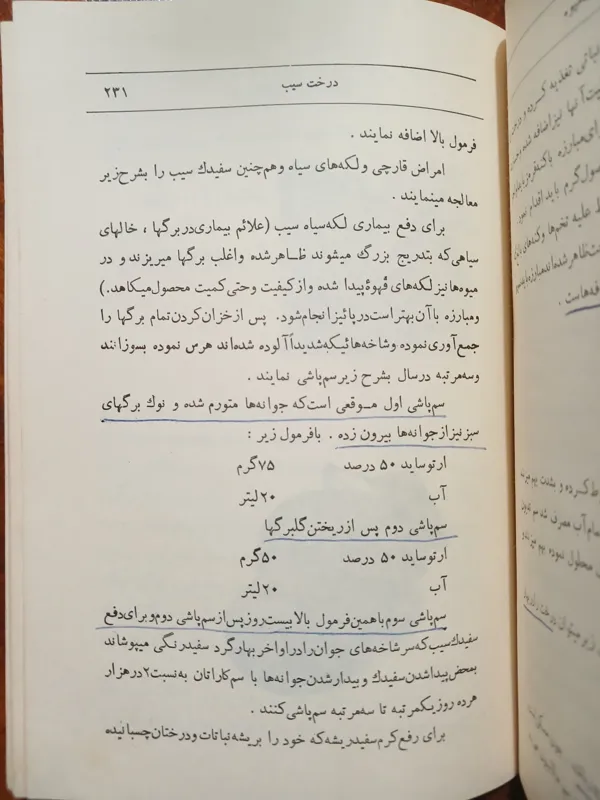 درخت سیب
۲۳۱
فرمول بالا اضافه نمایند .
امراض قارچی و لکه‌های سیاه وهم‌چنین سفیدك سیب را بشرح زیر
معالجه مینمایند .
برای دفع بیماری لکه‌سیاه سیب (علائم بیماری‌در برگها ، خالهای
سیاهی‌که بتدریج بزرگ میشوند ظاهر شده واغلب برگها میریزند و در
میوه‌ها نیز لکه‌های قهوهٔ پیدا شده و از کیفیت و حتی کمیت محصول میکاهد.)
ومبارزه با آن بهتر است در پائیز انجام‌شود. پس از خزان‌کردن تمام برگها را
جمع‌آوری نموده و شاخه‌هائیکه شدیداً آلوده شده‌اند هرس نموده بسوزانند
وسه‌مرتبه درسال بشرح زیر سم‌پاشی نمایند .
سم‌پاشی اول موقعی است‌که جوانه‌ها متورم شده و نوك برگهای
سبز نیز از جوانه‌ها بیرون زده . بافرمول زیر :
ارتوساید ۵۰ درصد ۷۵ گرم
آب ۲۰ لیتر
سم‌پاشی دوم پس از ریختن گلبرگها
ارتوساید ۵۰ درصد ۵۰ گرم
آب ۲۰ لیتر
سم‌پاشی سوم باهمین فرمول بالا بیست روز پس از سم‌پاشی دوم و برای دفع
سفیدك سیب که سر شاخه‌های جوان را در اواخر بهار گرد سفید رنگی میپوشاند
بمحض پیدا شدن سفیدك و بیدار شدن جوانه‌ها با سم کاراتان به نسبت ۲ در هزار
هرده روز یکمرتبه تا سه مرتبه سم‌پاشی کنند .
برای رفع کرم سفید ریشه که خود را بریشه نباتات و درختان چسبانیده